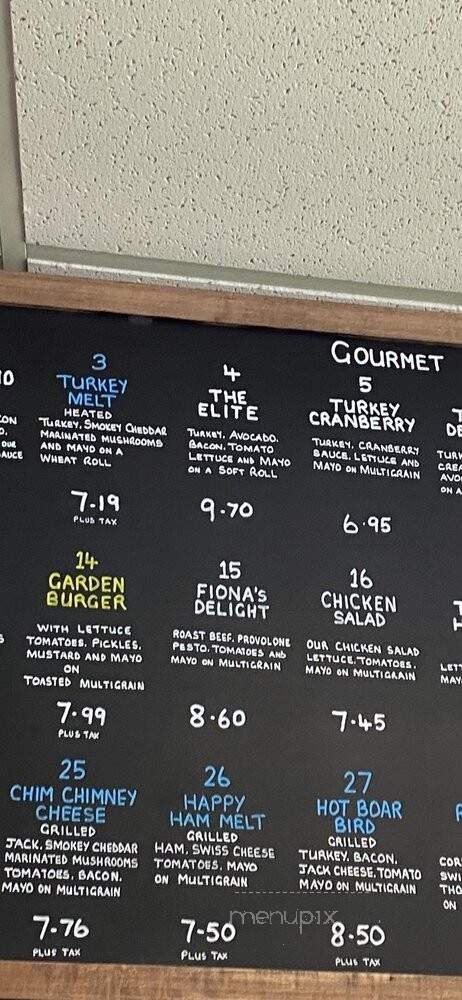 GOURMET
3
TURKEY
MELT
HEATED
TURKEY, SMOKEY CHEDDAR
MARINATED MUSHROOMS
AND MAYO ON A
WHEAT ROLL
7.19
PLUS TAX
4
THE
ELITE
TURKEY, AVOCADO,
BACON, TOMATO
LETTUCE AND MAYO
ON A SOFT ROLL
9.70
5
TURKEY
CRANBERRY
TURKEY, CRANBERRY
SAUCE, LETTUCE AND
MAYO ON MULTIGRAIN
6.95
14
GARDEN
BURGER
WITH LETTUCE
TOMATOES, PICKLES,
MUSTARD AND MAYO
ON
TOASTED MULTIGRAIN
7.99
PLUS TAX
15
FIONA'S
DELIGHT
ROAST BEEF, PROVOLONE
PESTO, TOMATOES AND
MAYO ON MULTIGRAIN
8.60
16
CHICKEN
SALAD
OUR CHICKEN SALAD
LETTUCE, TOMATOES,
MAYO ON MULTIGRAIN
7.45
25
CHIM CHIMNEY
CHEESE
GRILLED
JACK, SMOKEY CHEDDAR
MARINATED MUSHROOMS
TOMATOES, BACON,
MAYO ON MULTIGRAIN
7.76
PLUS TAX
26
HAPPY
HAM MELT
GRILLED
HAM, SWISS CHEESE
TOMATOES, MAYO
ON MULTIGRAIN
7.50
PLUS TAX
27
HOT BOAR
BIRD
GRILLED
TURKEY, BACON,
JACK CHEESE, TOMATO
MAYO ON MULTIGRAIN
8.50
PLUS TAX
menupix